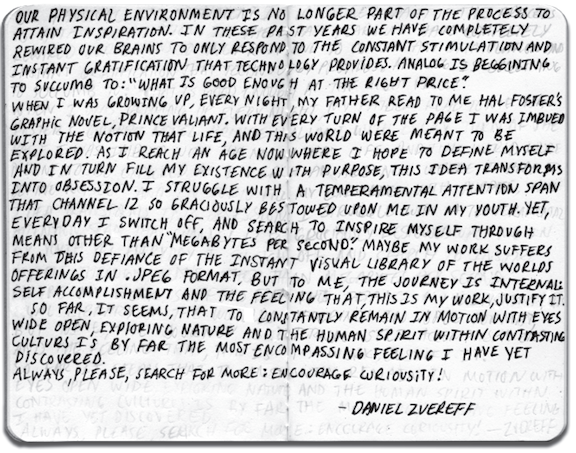 OUR PHYSICAL ENVIRONMENT IS NO LONGER PART OF THE PROCESS TO
ATTAIN INSPIRATION. IN THESE PAST YEARS WE HAVE COMPLETELY
REWIRED OUR BRAINS TO ONLY RESPOND TO THE CONSTANT STIMULATION AND
INSTANT GRATIFICATION THAT TECHNOLOGY PROVIDES. ANALOG IS BEGGINING
TO SUCCUMB TO: "WHAT IS GOOD ENOUGH AT THE RIGHT PRICE?"
WHEN I WAS GROWING UP, EVERY NIGHT, MY FATHER READ TO ME HAL FOSTER'S
GRAPHIC NOVEL, PRINCE VALIANT. WITH EVERY TURN OF THE PAGE I WAS IMBUED
WITH THE NOTION THAT LIFE, AND THIS WORLD WERE MEANT TO BE
EXPLORED. AS I REACH AN AGE NOW WHERE I HOPE TO DEFINE MYSELF
AND IN TURN FILL MY EXISTENCE WITH PURPOSE, THIS IDEA TRANSFORMS
INTO OBSESSION. I STRUGGLE WITH A TEMPERAMENTAL ATTENTION SPAN
THAT CHANNEL 12 SO GRACIOUSLY BESTOWED UPON ME IN MY YOUTH. YET,
EVERYDAY I SWITCH OFF, AND SEARCH TO INSPIRE MYSELF THROUGH
MEANS OTHER THAN "MEGABYTES PER SECOND." MAYBE MY WORK SUFFERS
FROM THIS DEFIANCE OF THE INSTANT VISUAL LIBRARY OF THE WORLDS
OFFERINGS IN .JPEG FORMAT. BUT TO ME, THE JOURNEY IS INTERNAL:
SELF ACCOMPLISHMENT AND THE FEELING THAT, THIS IS MY WORK, JUSTIFY IT.
SO FAR, IT SEEMS, THAT TO CONSTANTLY REMAIN IN MOTION WITH EYES
WIDE OPEN, EXPLORING NATURE AND THE HUMAN SPIRIT WITHIN CONTRASTING
CULTURS IS BY FAR THE MOST ENCOMPASSING FEELING I HAVE YET
DISCOVERED.
ALWAYS, PLEASE, SEARCH FOR MORE: ENCOURAGE CURIOUSITY!
- DANIEL ZVEREFF